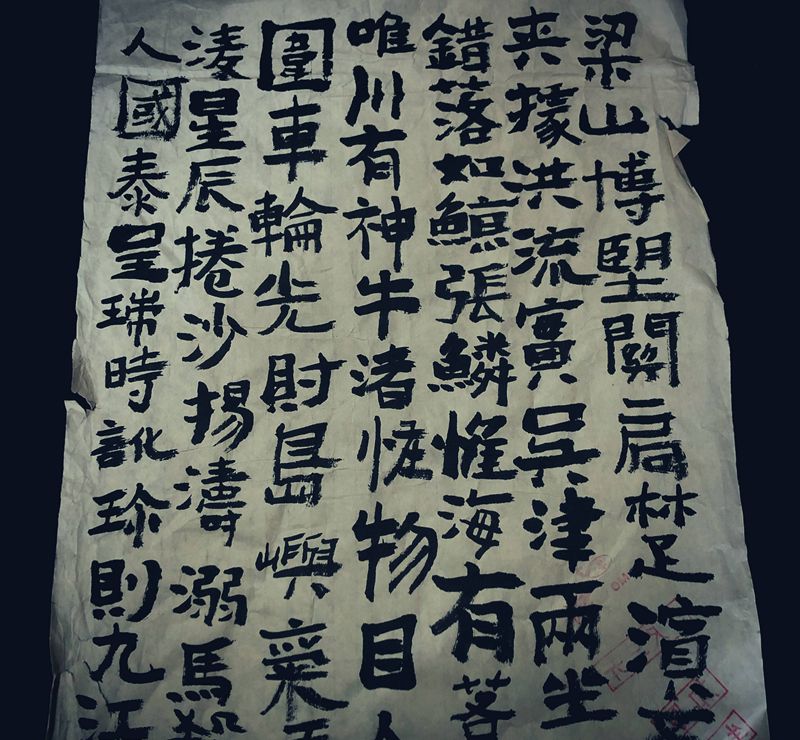 梁山博朢關扃楚濱
夾據洪流實吳津兩坐
錯落如鯨張鱗惟海有若
唯川有神牛渚怪物目
圍車輪光射島嶼
凌星辰捲沙揚濤溺馬殺
人國泰呈瑞時訛珍則九江